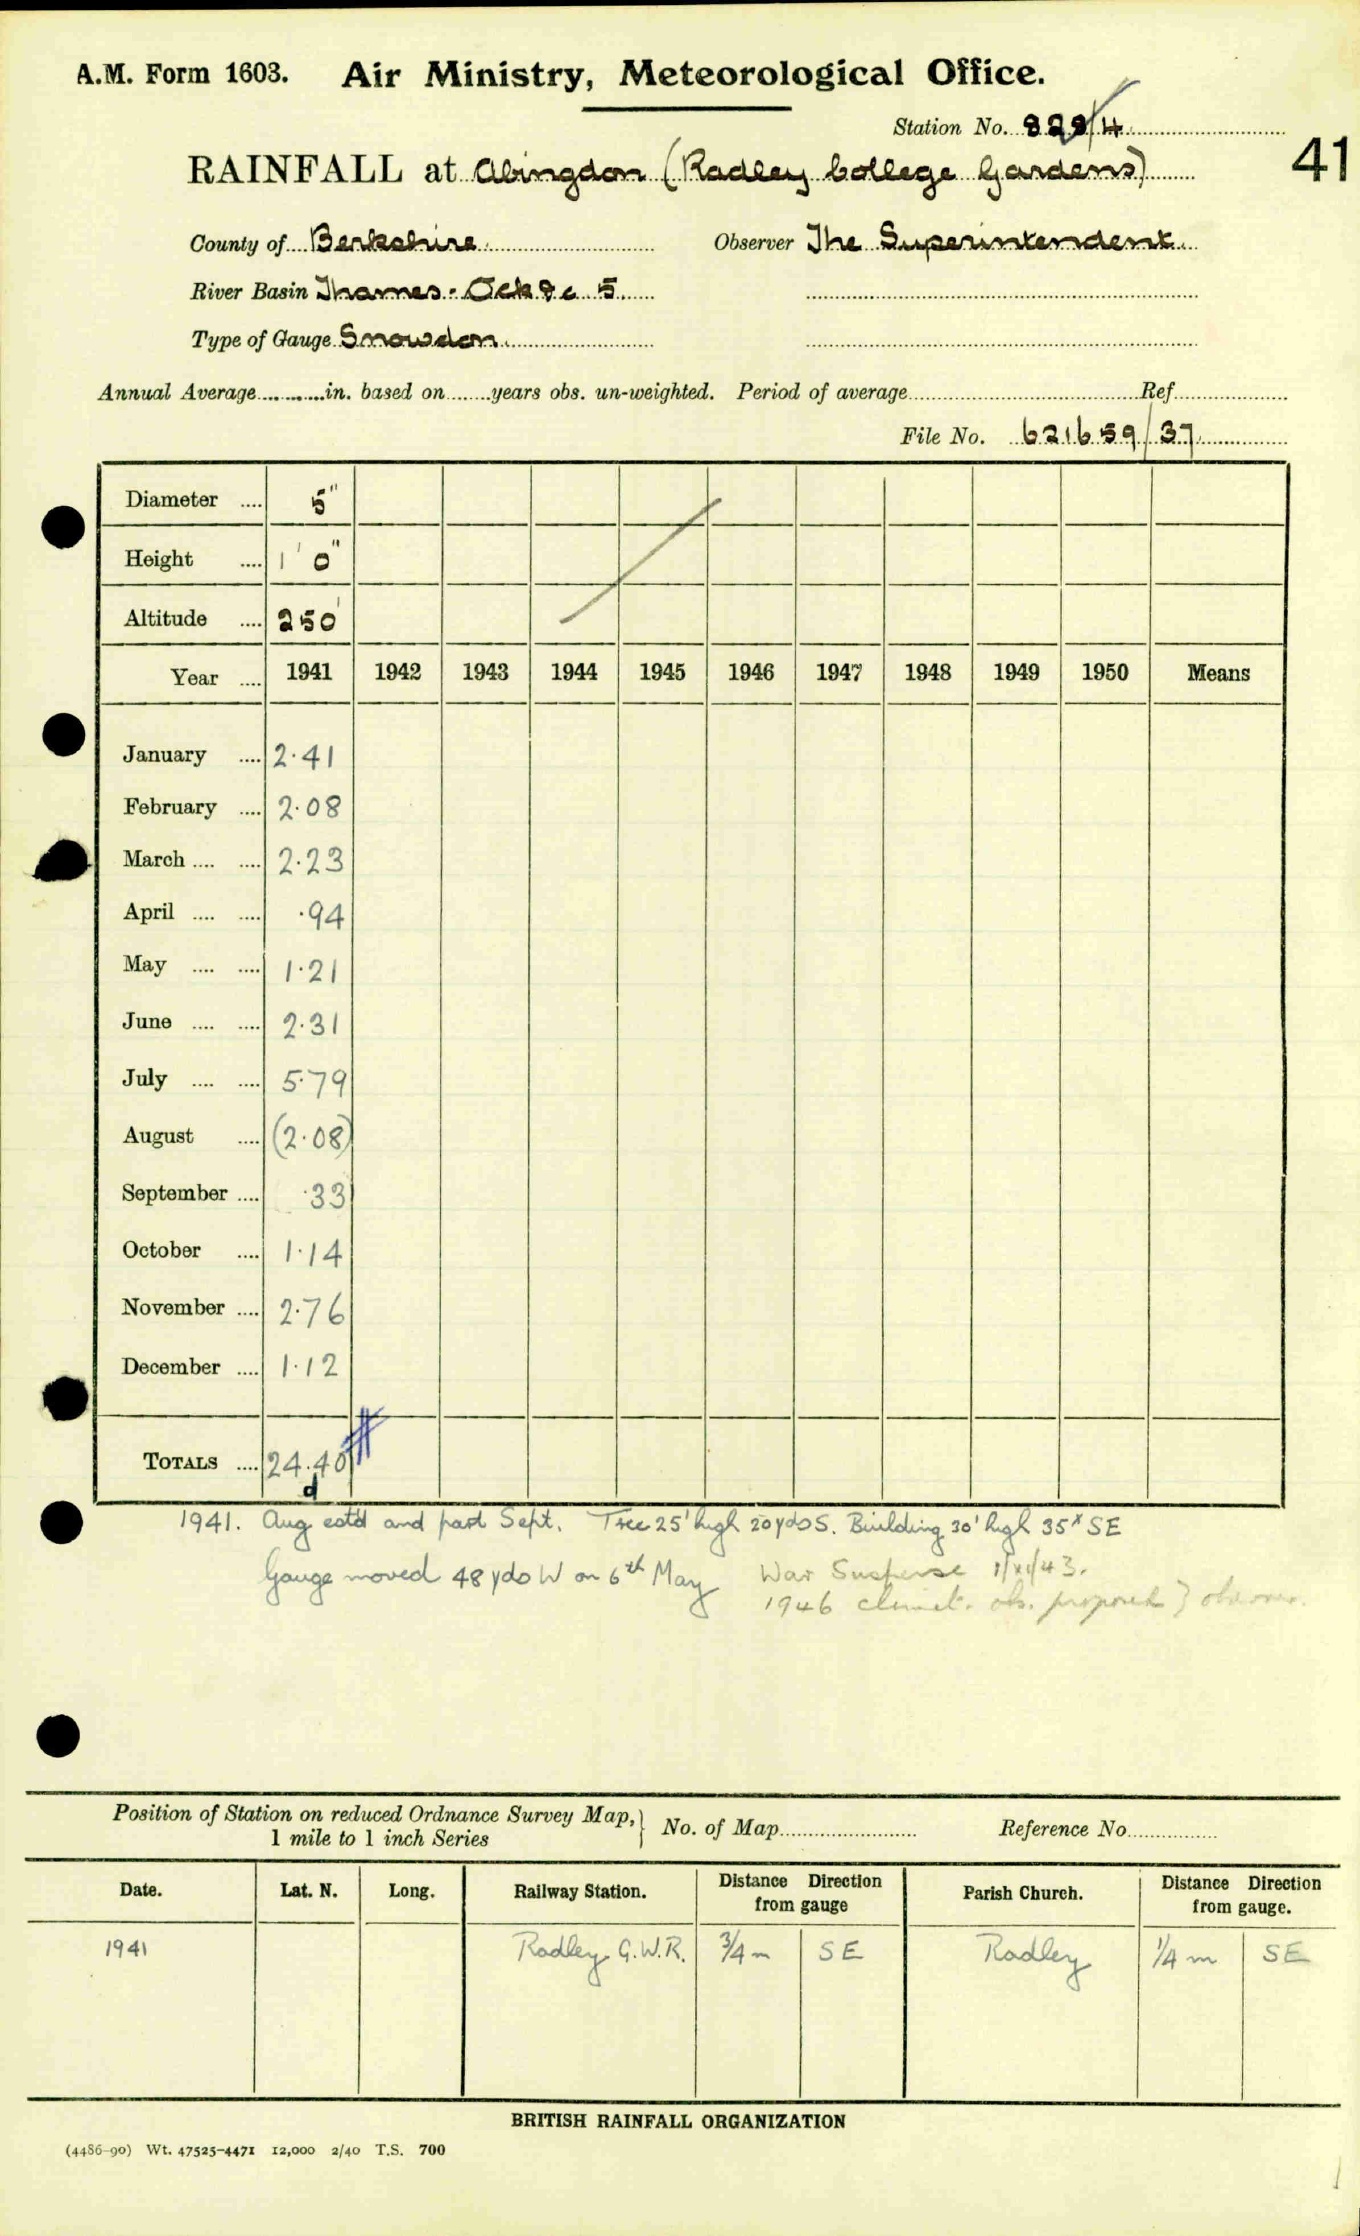 A.M. Form 1603. Air Ministry, Meteorological Office.
Station No. 828/4
41
RAINFALL at Abingdon (Radley College Gardens)
County of Berkshire. Observer The Superintendent.
River Basin Thames - Ock &c 5.
Type of Gauge Snowdon.
Annual Average..........in. based on.......years obs. un-weighted. Period of average..........Ref..........
File No. 621659/37
Diameter .... 5"
Height .... 1' 0"
Altitude .... 250'
Year .... 1941 1942 1943 1944 1945 1946 1947 1948 1949 1950 Means
January .... 2·41
February .... 2·08
March .... .... 2·23
April .... .... ·94
May .... .... 1·21
June .... .... 2·31
July .... .... 5·79
August .... (2·08)
September .... ·33
October .... 1·14
November .... 2·76
December .... 1·12
TOTALS .... 24.40
d
1941. Aug estd and part Sept. Tree 25' high 20 yds S. Building 30' high 35x SE
Gauge moved 48 yds W on 6th May War Suspense 1/XI/43.
1946 climat. obs. proposed
Position of Station on reduced Ordnance Survey Map, } No. of Map.......... Reference No..........
1 mile to 1 inch Series
Date. Lat. N. Long. Railway Station. Distance Direction from gauge Parish Church. Distance Direction from gauge.
1941 Radley G.W.R. 3/4 m SE Radley 1/4 m SE
BRITISH RAINFALL ORGANIZATION
(4486-90) Wt. 47525-4471 12,000 2/40 T.S. 700